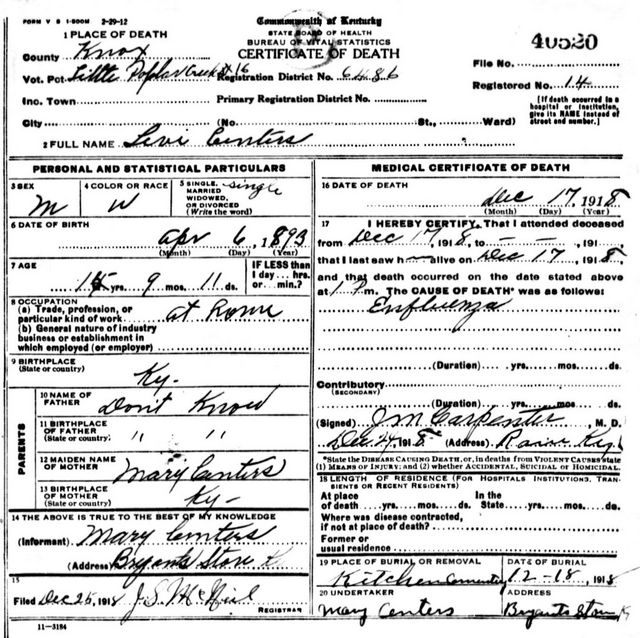 FORM V S 1-500M 2-29-12
Commonwealth of Kentucky
STATE BOARD OF HEALTH
BUREAU OF VITAL STATISTICS
CERTIFICATE OF DEATH
1 PLACE OF DEATH
County Knox
Vot. Pct. Little Poplar Creek # 16 Registration District No. 6486
Inc. Town Primary Registration District No.
City (No St., Ward)
File No. 40520
Registered No. 14
[If death occurred in a
hospital or institution,
give its NAME instead of
street and number.]
2 FULL NAME Levi Centers
PERSONAL AND STATISTICAL PARTICULARS
3 SEX M
4 COLOR OR RACE W
5 SINGLE, MARRIED WIDOWED, OR DIVORCED (Write the word) Single
6 DATE OF BIRTH
Apr 6, 1893
(Month) (Day) (Year)
7 AGE
yrs. 9 mos. 11 ds.
IF LESS than
1 day... hrs.
or min.?
8 OCCUPATION
(a) Trade, profession, or
particular kind of work at home
(b) General nature of industry
business or establishment in
which employed (or employer)
9 BIRTHPLACE
(State or country) Ky.
PARENTS
10 NAME OF
FATHER Don't Know
11 BIRTHPLACE
OF FATHER
(State or country) " "
12 MAIDEN NAME
OF MOTHER Mary Centers
13 BIRTHPLACE
OF MOTHER
(State or country) Ky-
14 THE ABOVE IS TRUE TO THE BEST OF MY KNOWLEDGE
(Informant) Mary Centers
(Address) Bryants Store K
15
Filed Dec 25, 1918 J.S. McNeil
REGISTRAR
11-3184
MEDICAL CERTIFICATE OF DEATH
16 DATE OF DEATH
Dec 17, 1918
(Month) (Day) (Year)
17 I HEREBY CERTIFY, That I attended deceased
from Dec 17, 1918, to - - , 191
that I last saw h alive on Dec 17, 1918
and that death occurred on the date stated above
at 1 P m. The CAUSE OF DEATH* was as follows:
Enfluenza
(Duration) yrs. mos. ds.
Contributory
(SECONDARY)
(Duration) yrs. mos. ds.
(Signed) J M Carpenter, M. D.
Dec 24, 1918 (Address) Ky.
*State the DISEASE CAUSING DEATH, or, in deaths from VIOLENT CAUSES state
(1) MEANS OF INJURY; and (2) whether ACCIDENTAL, SUICIDAL or HOMICIDAL.
18 LENGTH OF RESIDENCE (FOR HOSPITALS INSTITUTIONS, TRAN-
SIENTS OR RECENT RESIDENTS)
At place In the
of death yrs. mos. ds. State yrs. mos. ds.
Where was disease contracted,
if not at place of death?
Former or
usual residence
19 PLACE OF BURIAL OR REMOVAL
Kitchen Cemetery
DATE OF BURIAL
12-18, 1918
20 UNDERTAKER
Mary Centers
ADDRESS
Bryants Store K